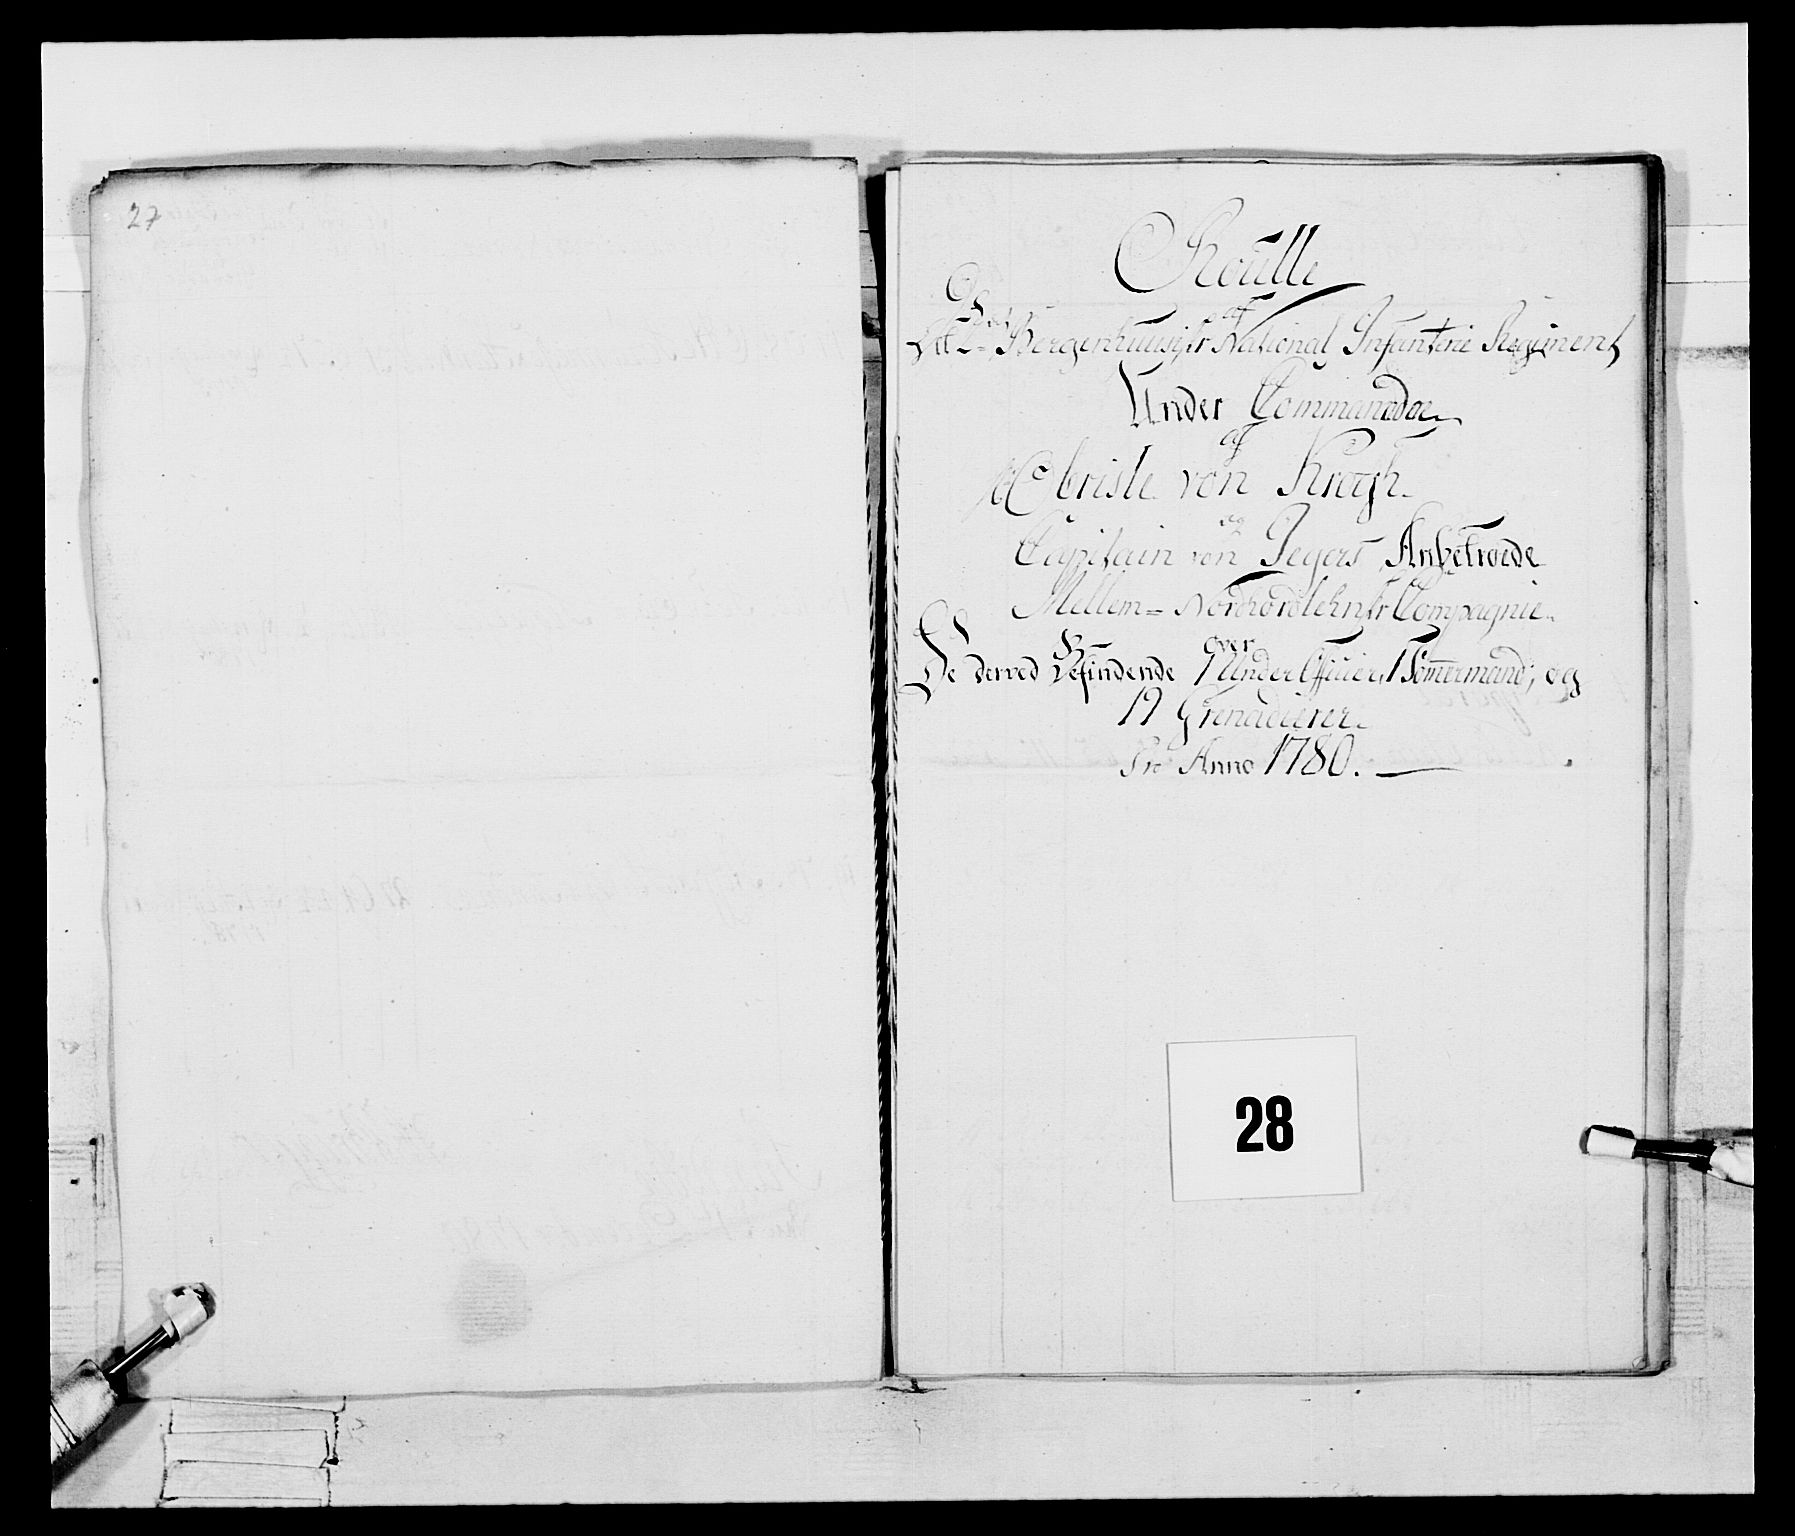 27
Roulle
af
Det 2det Bergenhuusiske National Infanterie Regiment
Under Commando
af
Obriste von Krogh
og
Capitain von Jegers Anbetroede
Mellem= Nordhordlehnske Compagnie.
over
De derved Befindende 1 Under Officier, 1 Tömmermand, og
19 Grenaderer.
Pro Anno 1780.
28